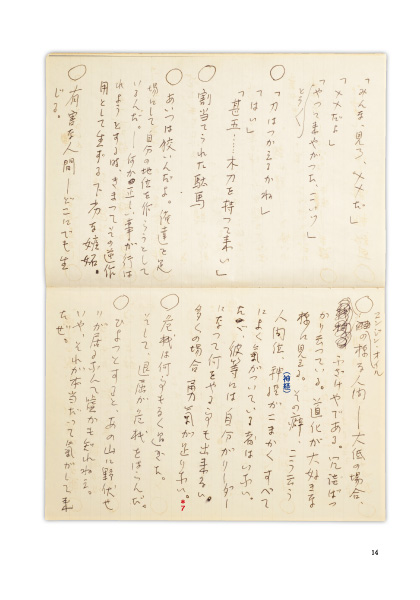 「みんな、見ろ、メメだ」
「メメだよ」
「やって来やがった、こいつ」
○
「刀はつかえるかね」
「はい」
「甚五…木刀を持って来い」
○
割当てられた駄馬
○
あいつは狡いんだよ。俺達を足
場にして、自分の地位を作ろうとして
いるんだ。―何か正しい事が行は
れようとする時、きまってその逆作
用として生ずる下劣な嫉妬。
○
有害な人間―どこにでも生
じる。
○
の様な人間―大低の場合、
ふざけやである。冗談ばっ
かり云っている。道化が大好きな
様に見える。その癖、こう云う
人間程、神経がこまかく すべて
(神経)
によく気がついている者はいない。
彼等には自分がリーダー
になって何をやる事も出来るい
多くの場合 勇気が足りない。
*7
○
危機は何事もなく過ぎた。
そして、退屈が危機をはらんだ。
○
ひょっとすると、あの山に野伏せ
りが居るなんて嘘かも知れねえ。
いや、それが本当だって気がして来
たぜ。
14